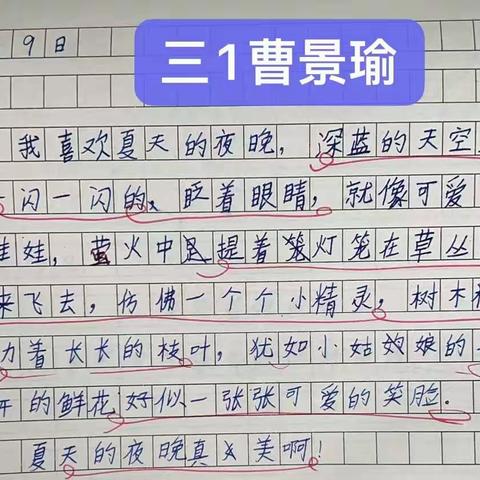 三1曹景瑜
9日
我喜欢夏天的夜晚，深蓝的天空
一闪一闪的、眨着眼睛，就像可爱
娃娃，萤火中是提着笼灯笼在草丛
来飞去，仿佛一个个小精灵，树木
着长长的枝叶，犹如小姑娘的
的鲜花好似一张张可爱的笑脸．
夏天的夜晚真美啊！